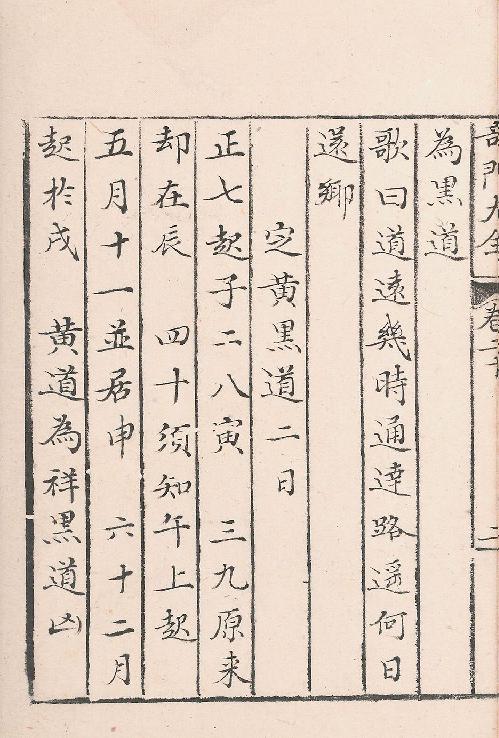 奇門大全 卷三 二
為黒道
歌曰道遠幾時通達路遥何日
還鄉
定黄黒道二日
正七起子二八寅 三九原来
却在辰 四十須知午上起
五月十一並居申 六十二月
起於戌 黄道為祥黒道凶